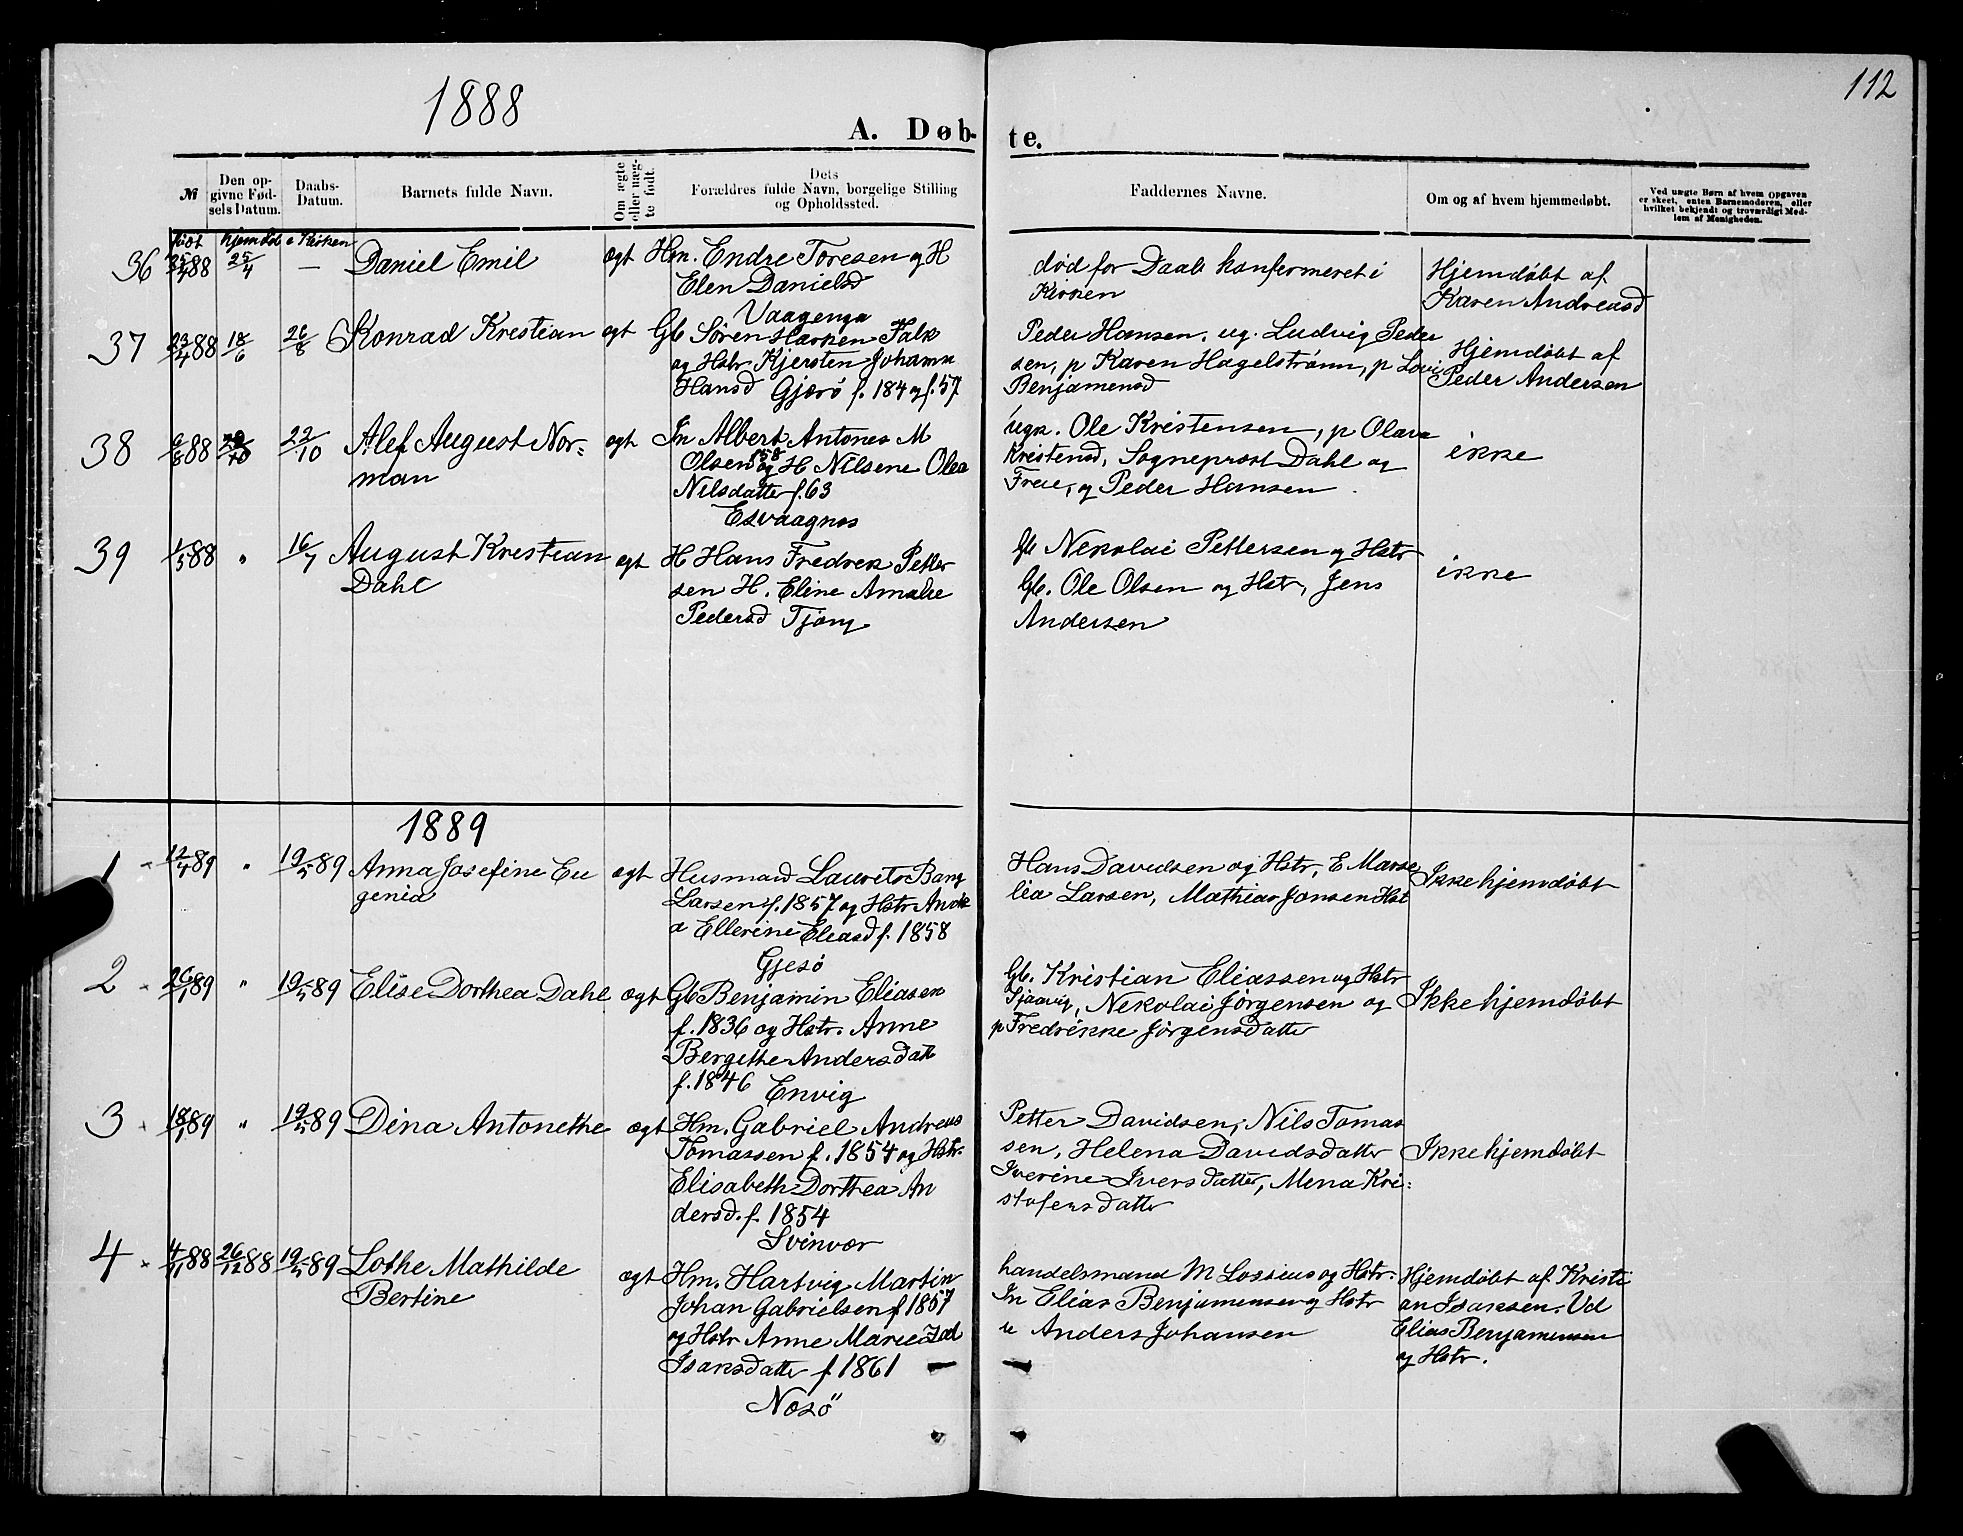 112
1888
A. Døb-
te.
№
Den op-
givne Fød-
sels Datum.
Daabs-
Datum.
Barnets fulde Navn.
Om ægte
eller uæg-
te født.
Dets
Forældres fulde Navn, borgelige Stilling
og Opholdssted.
Faddernes Navne.
Om og af hvem hjemmedøbt.
Ved uægte Børn af hvem Opgaven
er skeet, enten Barnemoderen, eller
hvilket bekjendt og troværdigt Med-
lem af Menigheden.
født hjemdøb i Kirken
36 25/4 88 25/4 — Daniel Emil ægt Hm. Endre Toresen og H
Elen Danielsd
Vaagenga
død før Daab konfermeret i
Kirken
Hjemdöbt af
Karen Andreasd
37 23/4 88 18/6 26/8 Konrad Krestian ægt Gb Sören Falk
og Hstr Kjersten Johanna
Hansd Gjærö f. 184 og f. 57
Peder Hansen, ug. Ludvig Peder
sen, p Karen Hagelström, p
Benjamensd
Hjemdöbt af
Peder Andersen
38 9/8 88 22/10 Alef August Nor=
man
ægt In Albert Antones M
Olsen 158 og H Nilsene Olea
Nilsdatter f. 63
Esvaagnæs
Ole Kristensen, p Olava
Kristensd, Sogneprest Dahl og
Frue, og Peder Hansen.
ikke
39 1/5 88 " 16/7 August Krestian
Dahl
ægt H Hans Fredrek Petter
sen H. Eline Amalie
Pedersd Tjong
Gb Nekolai Pettersen og Hstr
Gb. Ole Olsen og Hstr, Jens
Andersen
ikke
1889
1 12/4 89 " 19/5 89 Anna Josefine Eu
genia
ægt Husmand Laurets Bang
Larsen f. 1857 og Hstr
a Ellerine Eliasd f. 1858
Gjesö
Hans Davidsen og Hstr, E Marse
lia Larsen, Mathias Jonsen Hst
Ikke hjemdöbt
2 26/1 89 " 19/5 89 Elise Dorthea Dahl ægt Gb Benjamin Eliasen
f. 1836 og Hstr. Anne
Bergithe Anders datt
f. 1846 Envig
Gb. Kristian Eliassen og Hstr
Tjaavig, Nekolai Jörgensen og
p Fredrikke Jörgensdatter
Ikke hjemdöbt
3 18/1 89 " 19/5 89 Dina Antonethe ægt Hm. Gabriel Andreas
Tomassen f. 1854 og Hstr.
Elisabeth Dorthea An
dersd. f. 1854
Svinvær
Petter Davidsen, Nils Tomas
sen, Helena Davidsdatter
Iverine Ivers datter, Mena Kri:
stofersdatter
Ikke hjemdöbt
4 4/11 88 26/12 88 19/5 89 Lothe Mathilde
Bertine
ægt Hm. Hartvig Martin
Johan Gabrielsen f 1857
og Hstr Anne Marie
Isaksdatter f 1861
Næsö
handelsmand M Lossius og Hstr.
In Elias Benjamensen og Hstr
u Anders Johansen
Hjemdöbt af Kristi
an Isaksen. Ud
Elias Benjamensen
og Hstr.